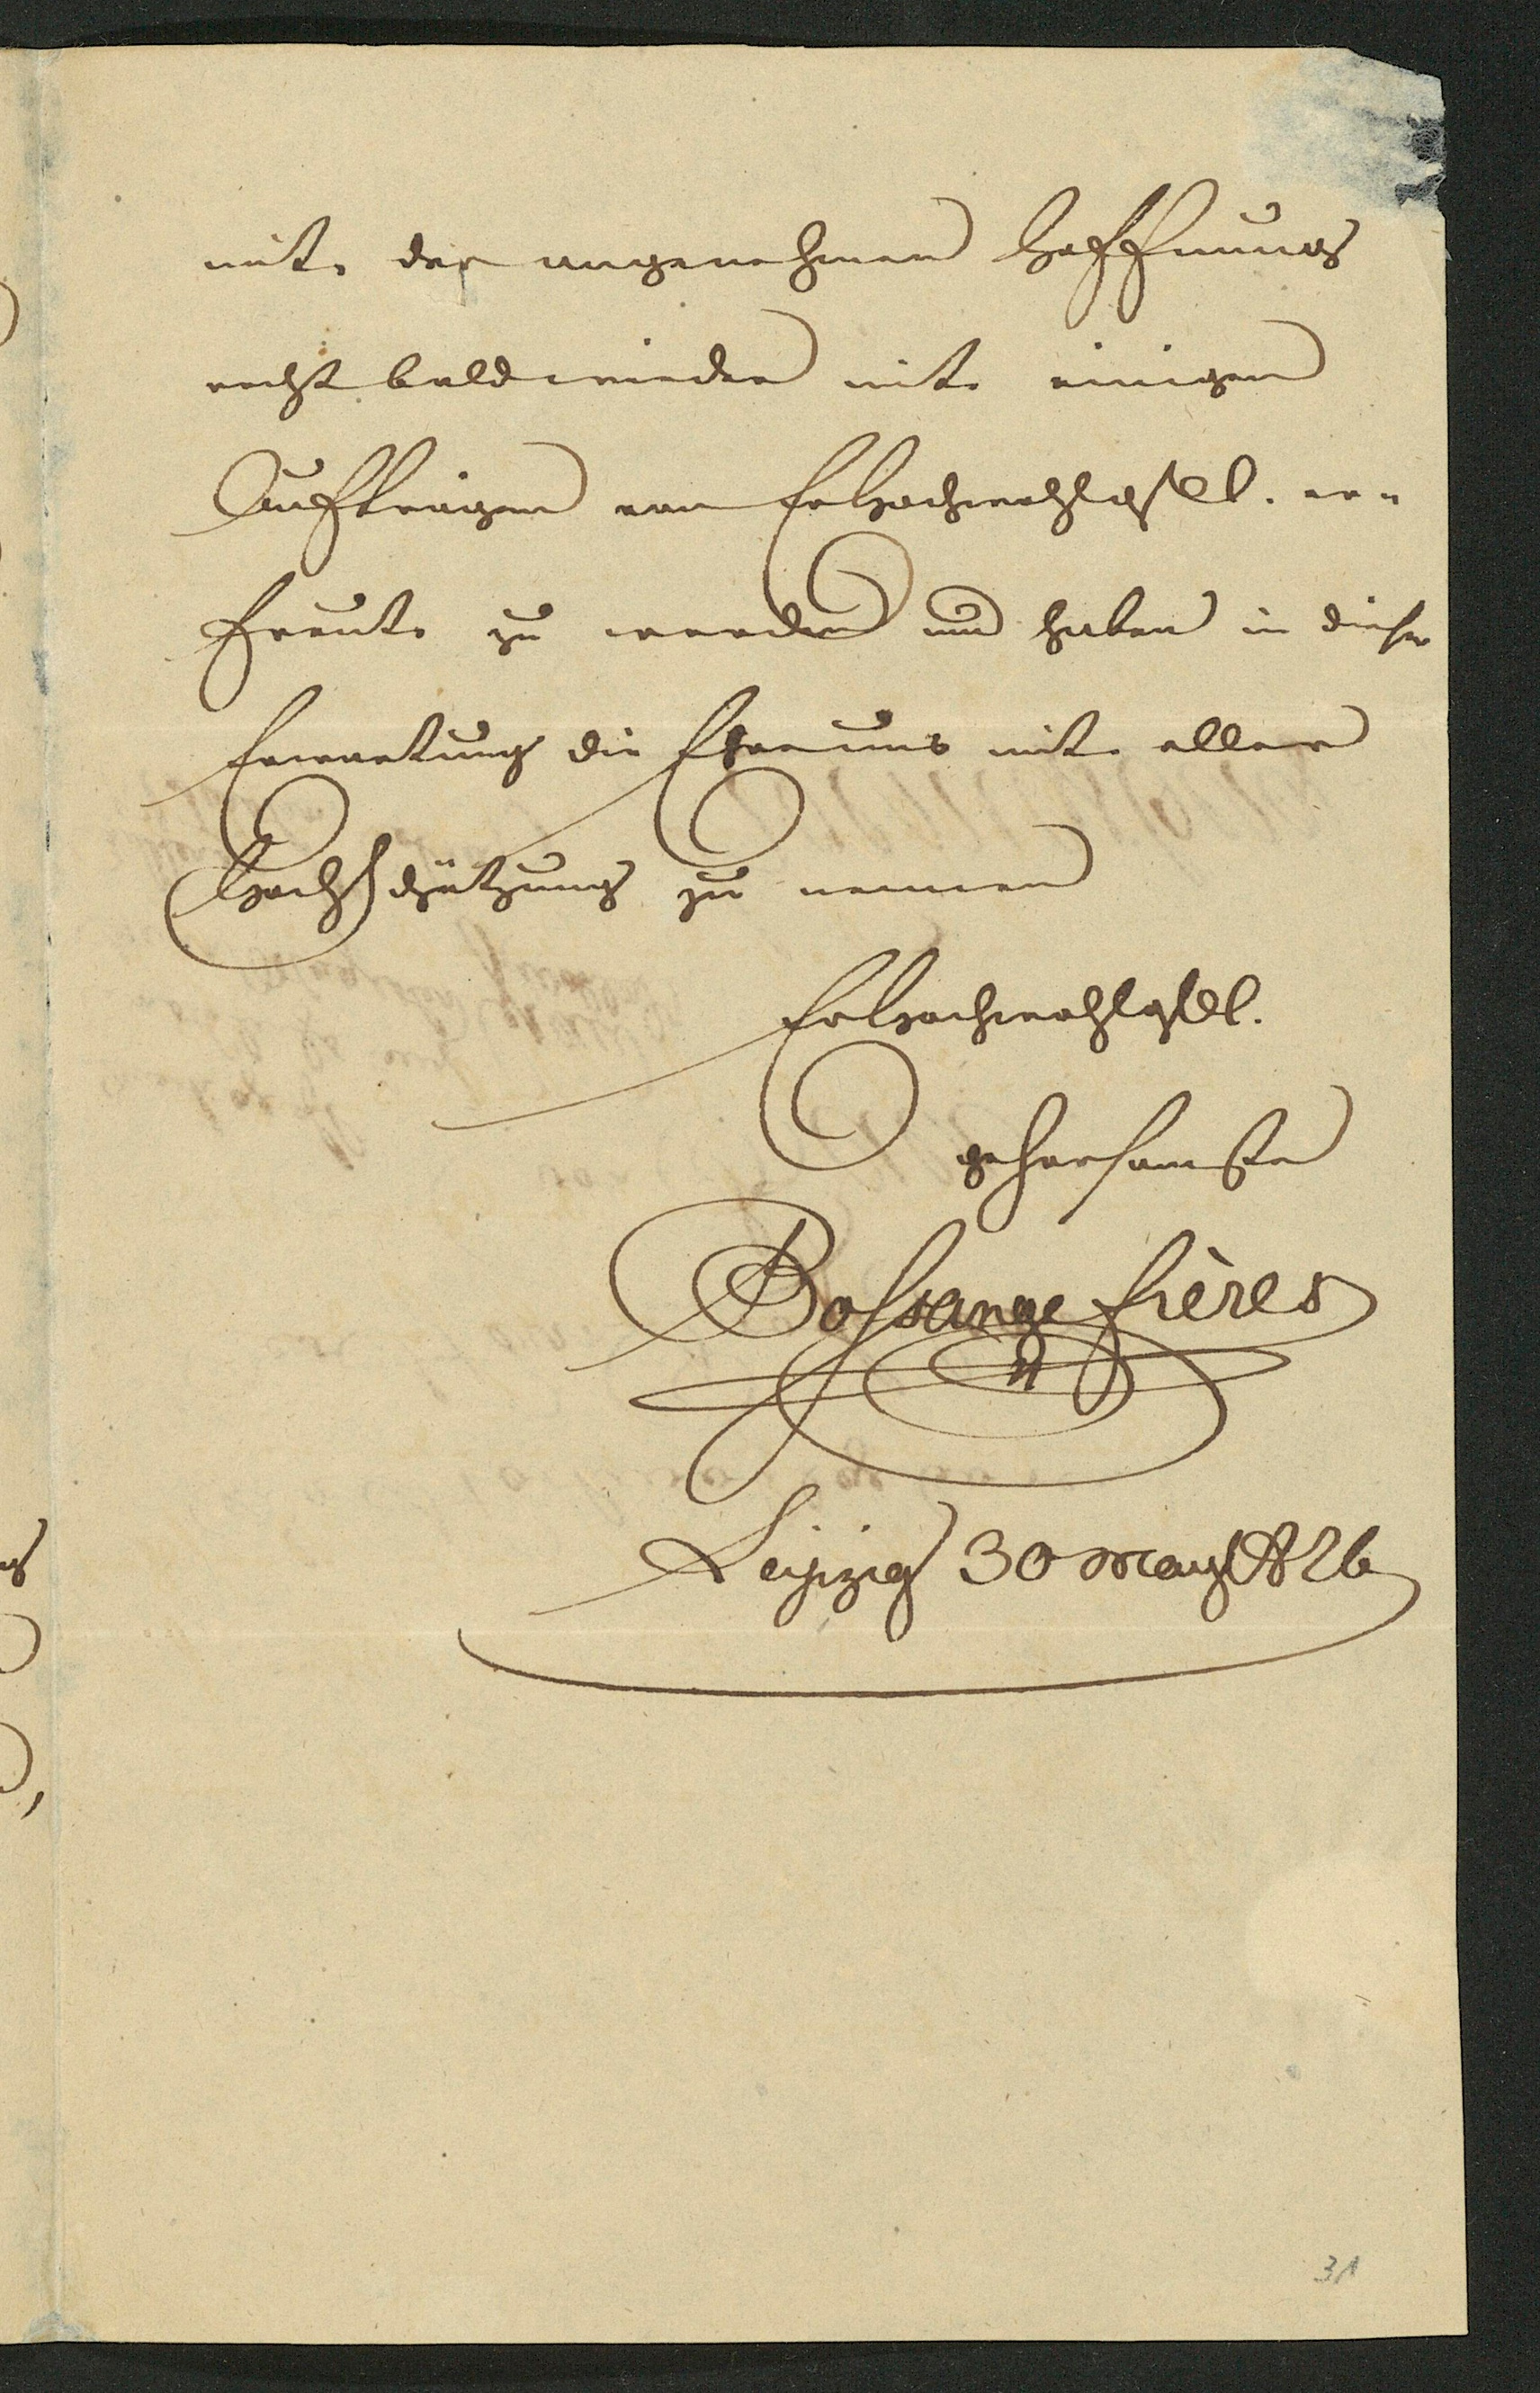 mit der angenehmen Hoffnung
recht bald wieder mit einigen
Aufträgen von Ew Hochwohlgeb. er=
freut zu werden und haben in dieser
Erwartung die Ehre uns mit aller
Hochschätzung zu nennen
Ew Hochwohlgeb.
gehorsamste
Bossange frères
Leipzig 30 May 1826
31